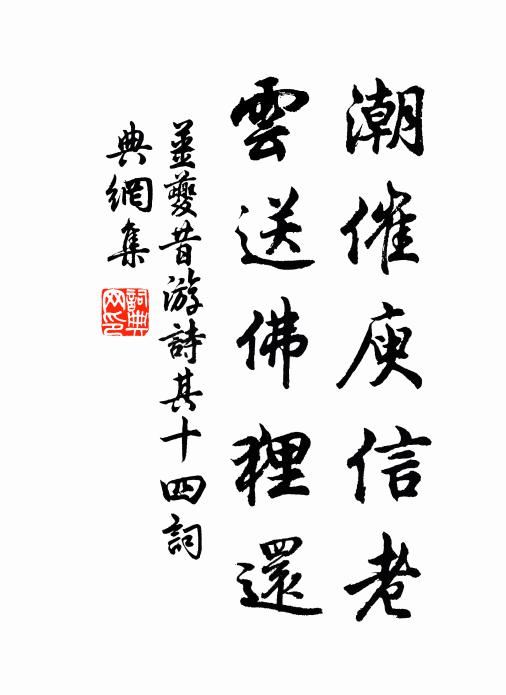 潮催庾信老
雲送佛狸還
姜夔昔游詩其十四詞
典網集
詞典網印